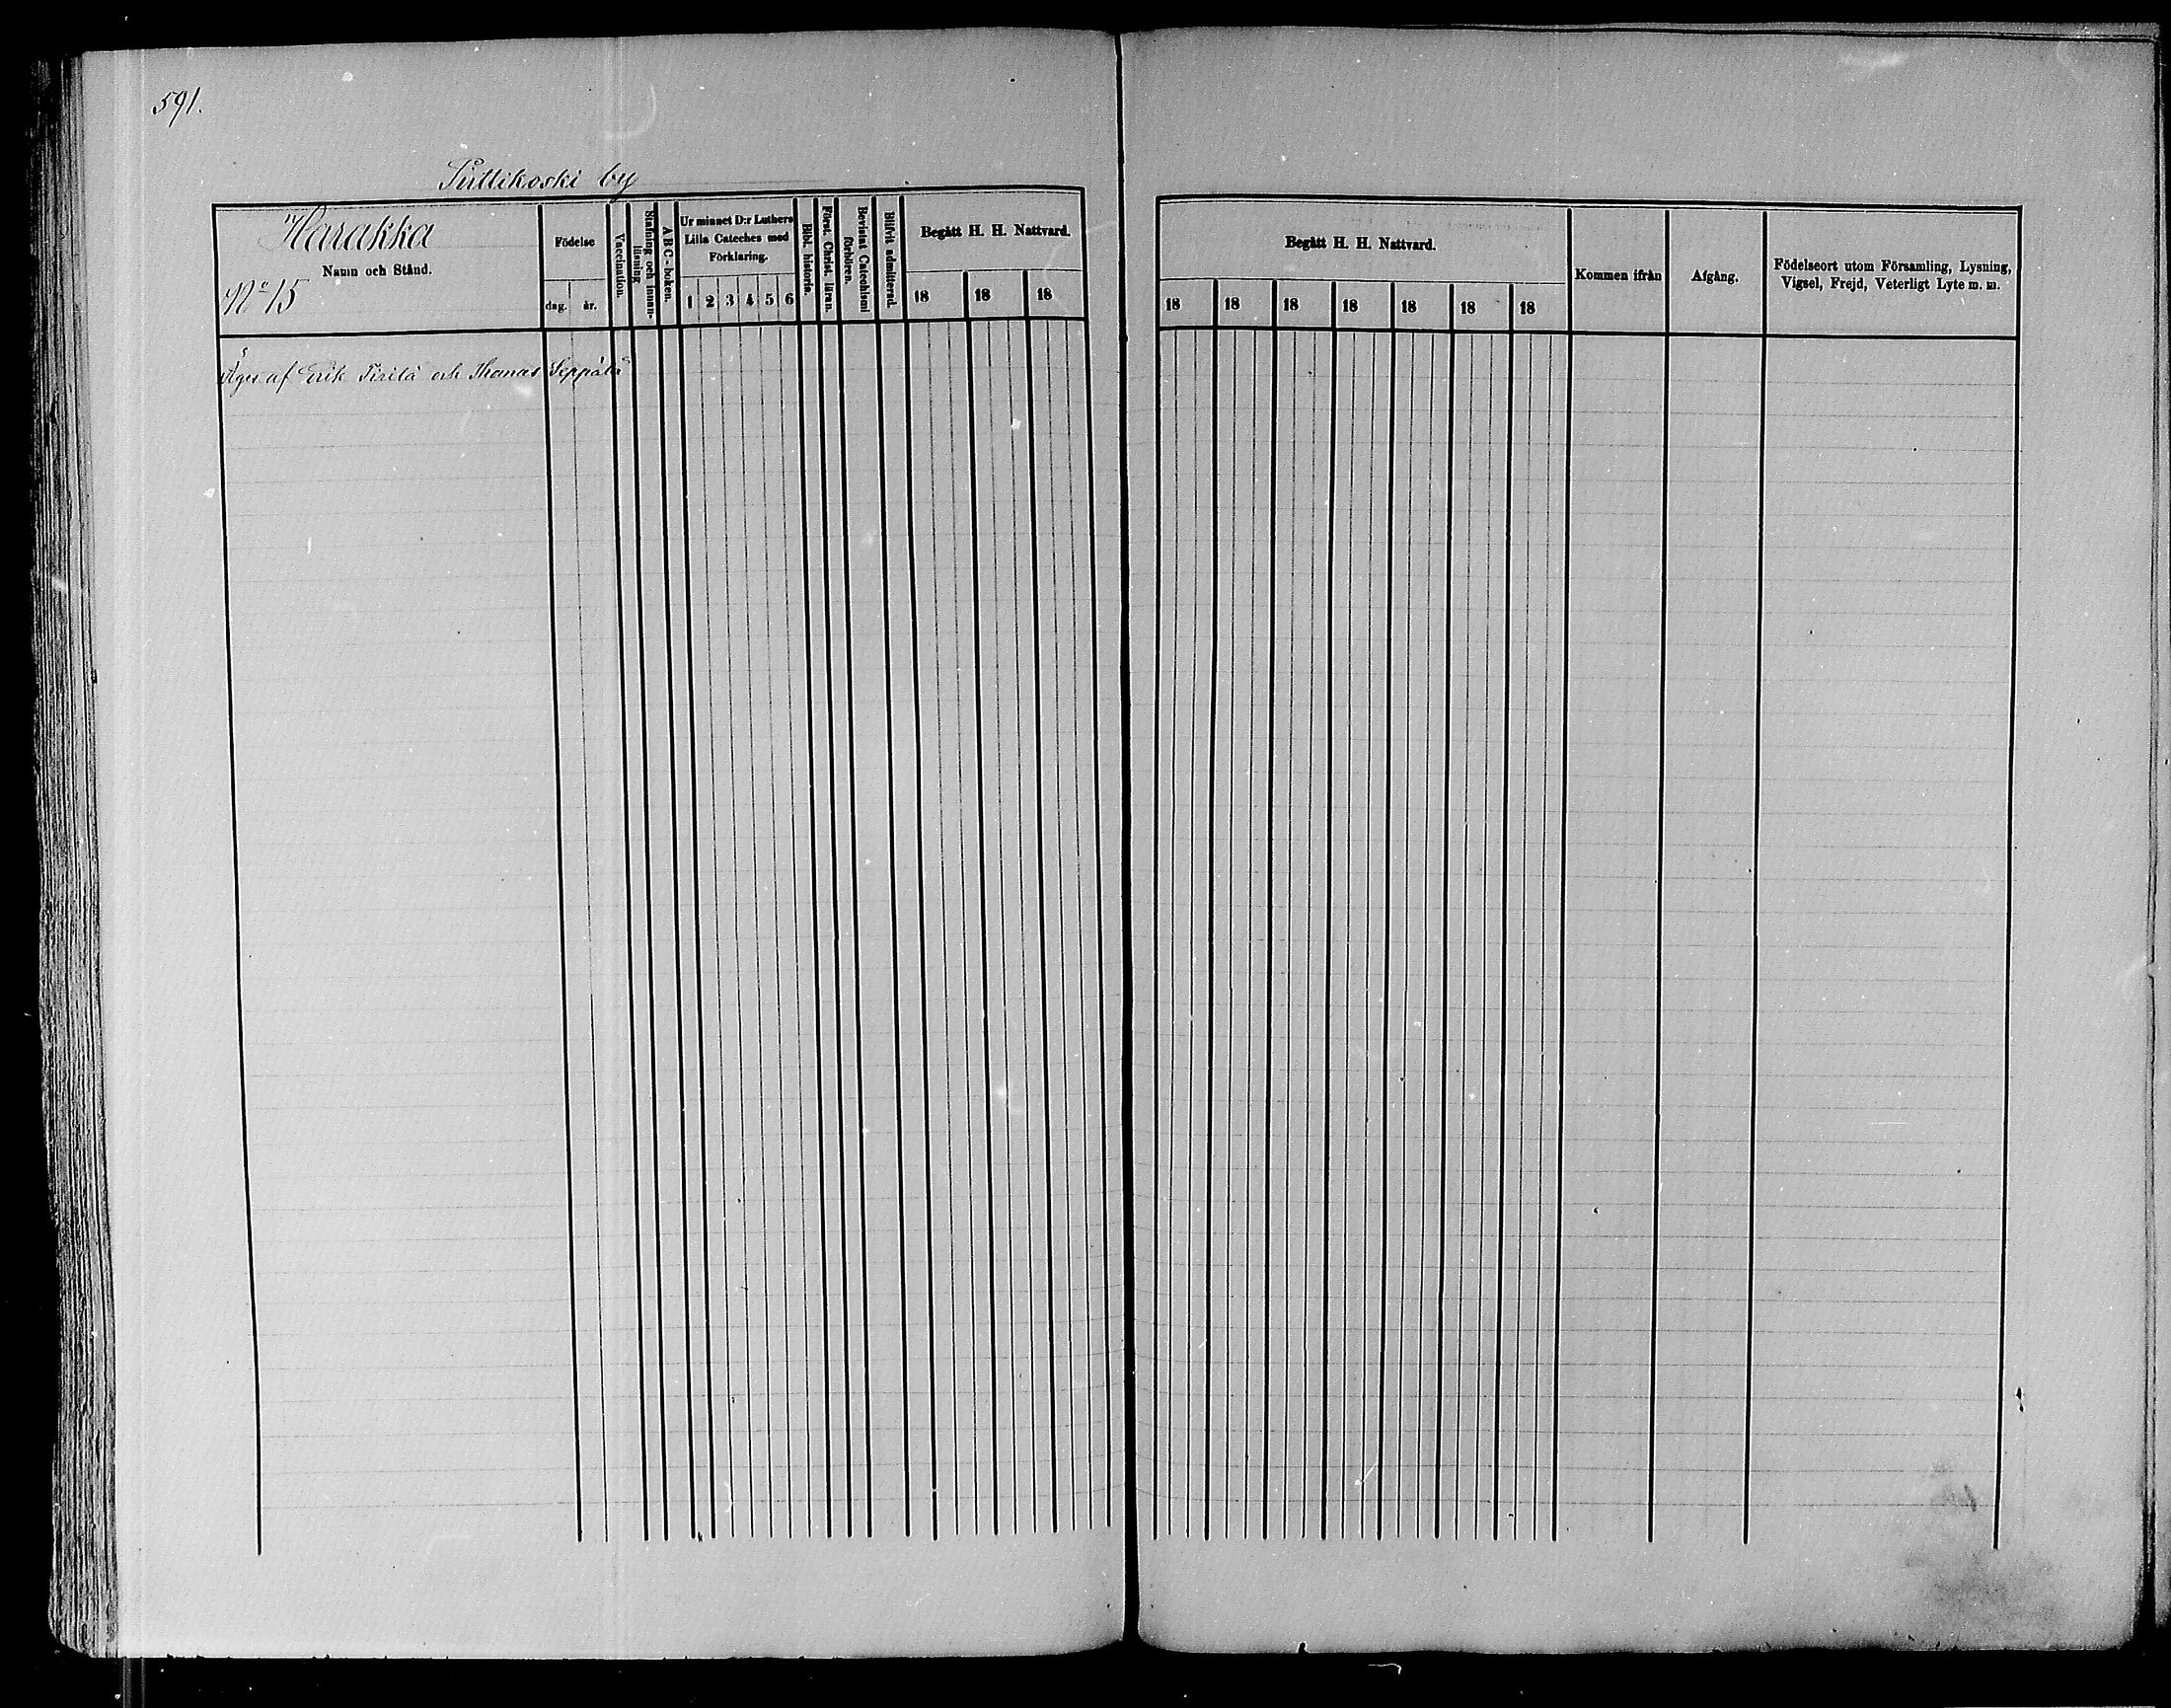 591.
Tuttikoski by
Harakka
Namn och Stånd.
No 15
Födelse
dag. år.
Vaccination.
Stafning och innan-
läsning
A B C - boken.
Ur minnet D:r Luthers
Lilla Cateches med
Förklaring.
1 2 3 4 5 6
Bibl. historia.
Först. Christ. läran.
Bevistat Catechismi
förhören.
Blifvit admitterad.
Begått H. H. Nattvard.
18 18 18
Begått H. H. Nattvard.
18 18 18 18 18 18 18
Kommen ifrån
Afgång.
Födelseort utom Församling, Lysning,
Vigsel, Frejd, Veterligt Lyte m. m.
Äges af Erik och Thomas Seppälä